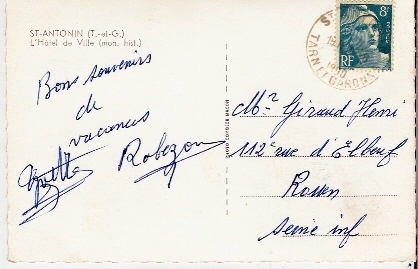 ST-ANTONIN (T.-et-G.)
L'Hôtel de Ville (mon. hist.)
8F
RF
TARN ET GARONNE
Bons souvenirs
de
vacances
Robezon
Mr Giraud Henri
112 rue d'Elbeuf
Rouen
Seine inf